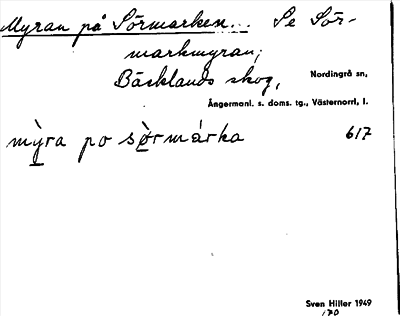 Myran på Sörmarken... Se Sör-
markmyran;
Bäcklands skog, Nordingrå sn,
Ångermanl. s. doms. tg., Västernorrl, l.
mỳra po sø̀rmárka 617
Sven Hiller 1949
170